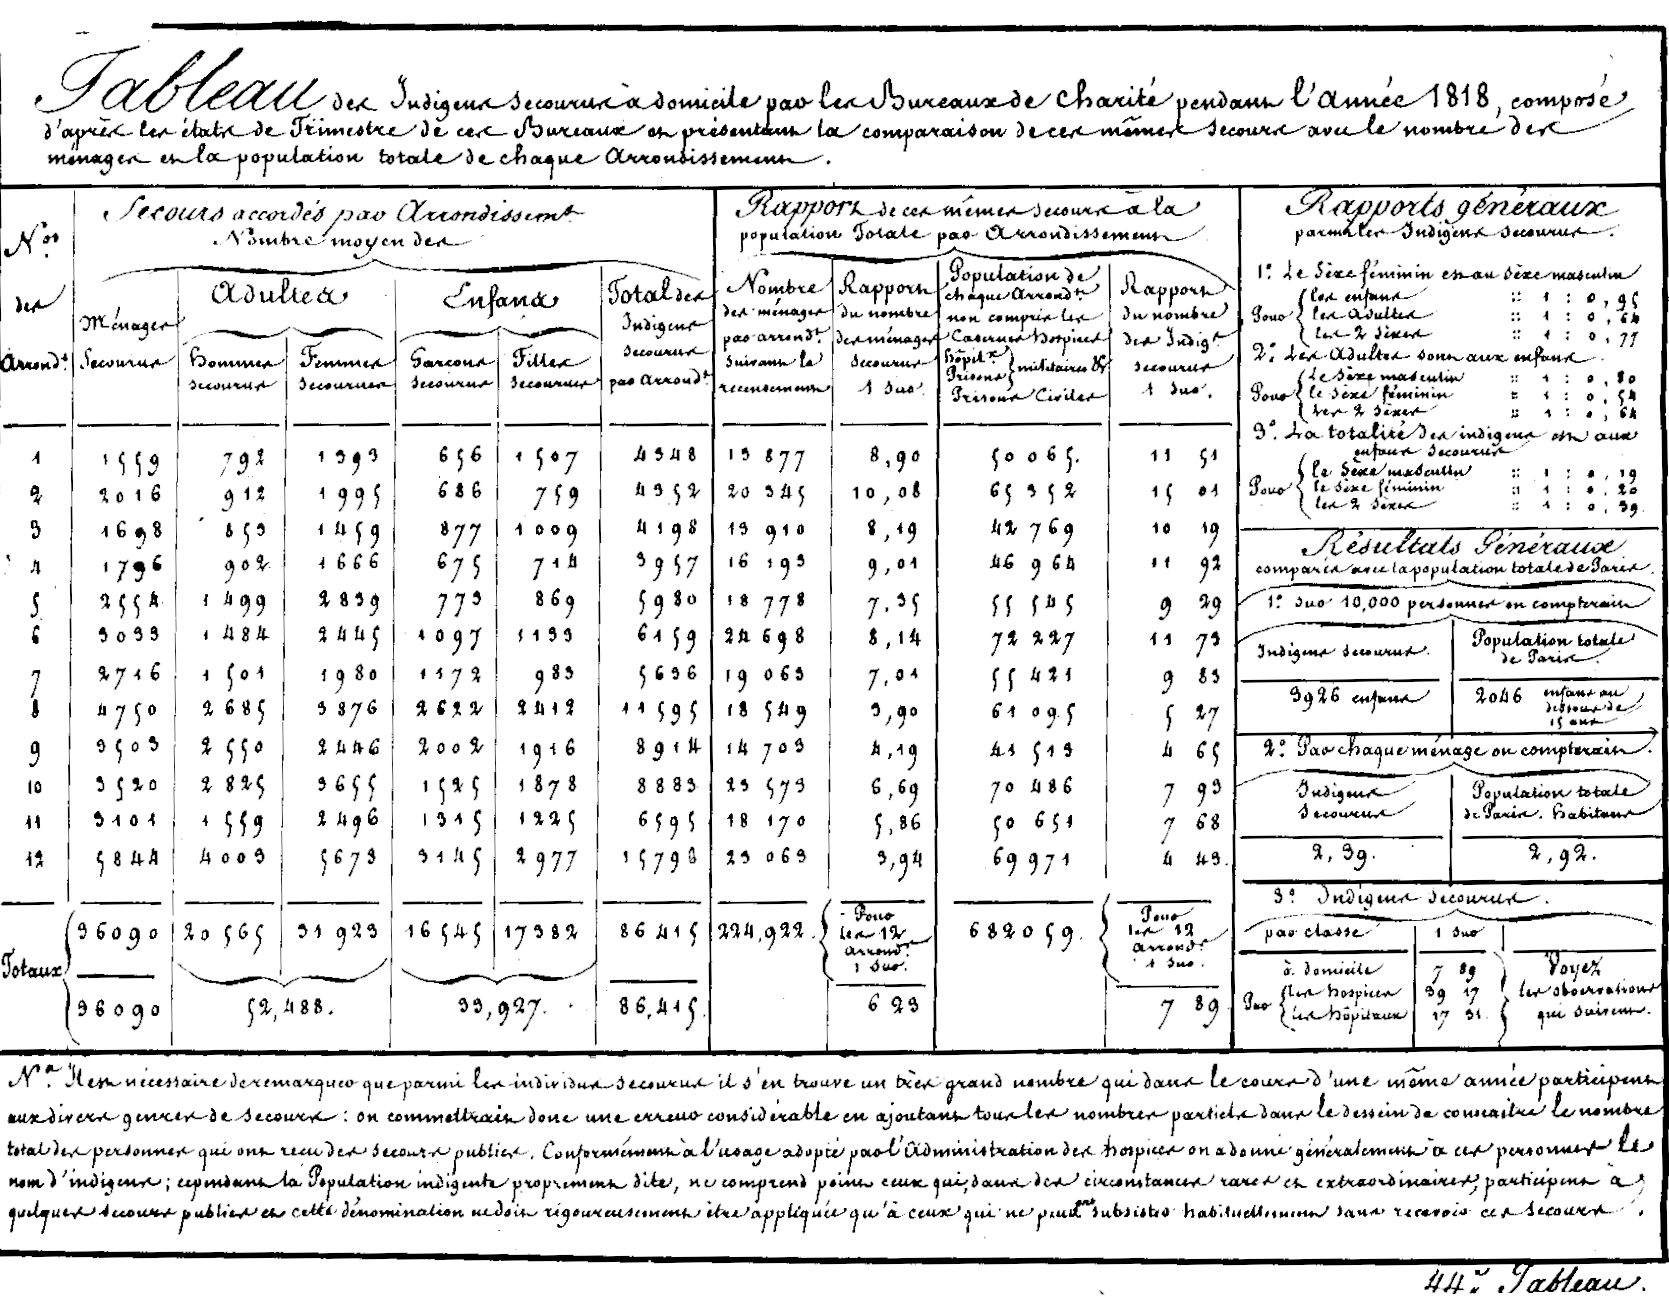 Tableau des Indigens secourus à domicile par les Bureaux de Charité pendant l'Année 1818, composé
d'après les états de Trimestre de ces Bureaux et présentant la comparaison de ces mêmes secours avec le nombre des
ménages et la population totale de chaque Arrondissement.
Nos des Arrondts
Secours accordés par Arrondissemt
Nombre moyen des
Ménages Secourus
Adultes
Hommes secourus
Femmes secourues
Enfans
Garçons secourus
Filles secourues
Total des Indigens secourus par Arrondt
Rapport de ces mêmes secours à la
population Totale par Arrondissement
Nombre des ménages par arrondt suivant le recensement
Rapport du nombre des ménages secourus 1 sur
Population de chaque Arrondt non compris les Casernes Hospices Hôpitx Prisons militaires &c Prisons Civiles
Rapport du nombre des Indigs secourus 1 sur.
1 1559 792 1393 656 1507 4348 13 877 8,90 50 065. 11 51
2 2016 912 1995 686 759 4352 20 345 10,08 65 352 15 01
3 1698 853 1459 877 1009 4198 13 910 8,19 42 769 10 19
4 1796 902 1666 675 714 3957 16 193 9,01 46 964 11 92
5 2554 1499 2839 773 869 5980 18 778 7,35 55 545 9 29
6 3033 1484 2445 1097 1133 6159 24 698 8,14 72 227 11 73
7 2716 1501 1980 1172 983 5636 19 063 7,01 55 421 9 83
8 4750 2685 3876 2622 2412 11595 18 549 3,90 61 095 5 27
9 3503 2550 2446 2002 1916 8914 14 703 4,19 41 513 4 65
10 3520 2825 3655 1525 1878 8883 23 573 6,69 70 486 7 93
11 3101 1559 2496 1315 1225 6595 18 170 5,86 50 651 7 68
12 5844 4003 5673 3145 2977 15798 23 063 3,94 69 971 4 43.
Totaux
36090 20 565 31 923 16 545 17382 86 415 224,922. Pour les 12 arrondts 1 sur. 682 059. Pour les 12 arrondts 1 sur.
36090 52,488. 33,927. 86,415. 6 23 7 89
Rapports généraux
parmi les Indigens secourus.
1o. Le Sèxe féminin est au sèxe masculin
Pour
les enfans :: 1 : 0,95
les Adultes :: 1 : 0,64
les 2 Sèxes :: 1 : 0,77
2o. Les Adultes sont aux enfans.
Pour
le Sèxe masculin :: 1 : 0,80
le Sèxe féminin :: 1 : 0,54
les 2 Sèxes :: 1 : 0,64
3o. La totalité des indigens est aux
enfans secourus
Pour
le Sèxe masculin :: 1 : 0,19
le Sèxe féminin :: 1 : 0,20
les 2 Sèxes :: 1 : 0,39.
Résultats Généraux
comparés avec la population totale de Paris.
1o. Sur 10,000 personnes on compterait
Indigens secourus.
Population totale de Paris.
3926 enfans
2046 enfans au dessous de 15 ans
2o. Par chaque ménage on compterait.
Indigens secourus
Population totale de Paris. habitans
2,39.
2,92.
3o. Indigens secourus.
par classe 1 sur
à domicile 7 89
Par
les hospices 39 17
les hôpitaux 17 31.
Voyez
les observations
qui suivent.
Na. Il est nécessaire de remarquer que parmi les individus secourus il s'en trouve un très grand nombre qui dans le cours d'une même année participent
aux divers genres de secours : on commettrait donc une erreur considérable en ajoutant tous les nombres partiels dans le dessein de connaître le nombre
total des personnes qui ont reçu des secours publics. Conformément à l'usage adopté par l'Administration des hospices on a donné généralement à ces personnes le
nom d'indigens ; cependant la Population indigente proprement dite, ne comprend point ceux qui, dans des circonstances rares et extraordinaires, participent à
quelques secours publics et cette dénomination ne doit rigoureusement être appliquée qu'à ceux qui ne peuvent subsister habituellement sans recevoir ces secours.
44e. Tableau.